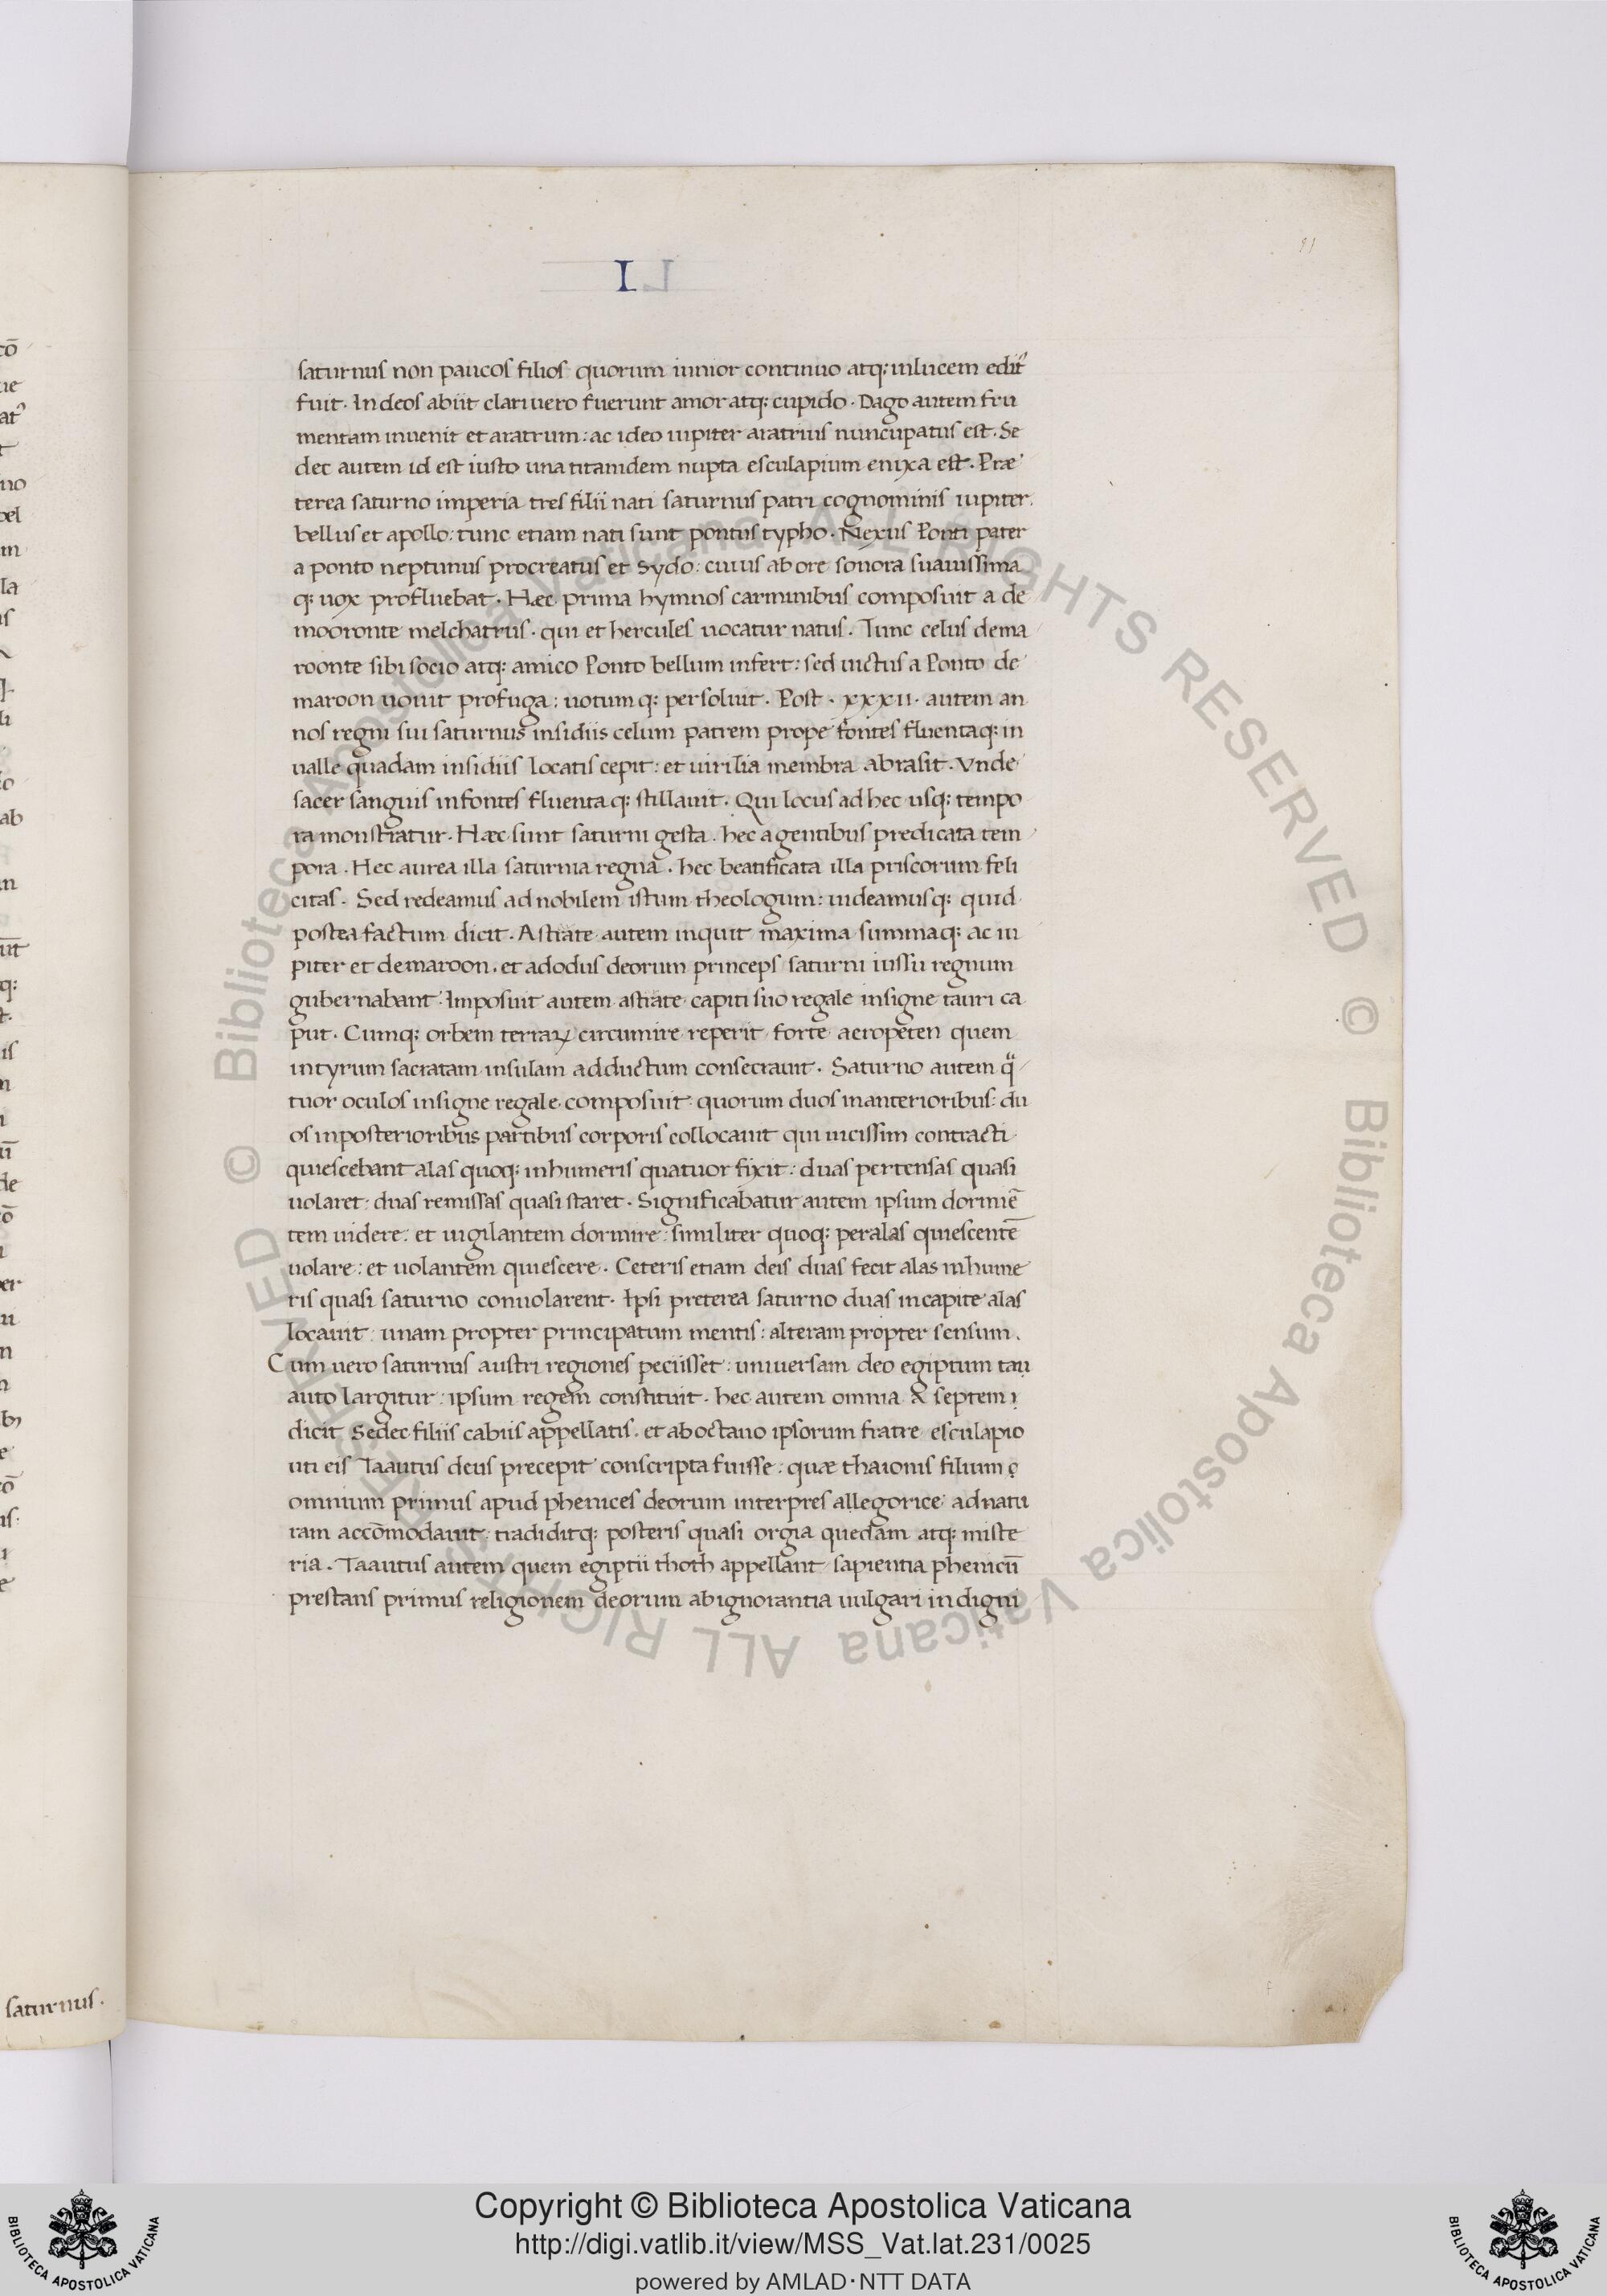 I
11
saturnus non paucos filios quorum iunior continuo atq; inlucem edit᾽
fuit. In deos abiit clari uero fuerunt amor atq; cupido. Dago autem fru
mentam inuenit et aratrum: ac ideo iupiter aratrius nuncupatus est. Se
dec autem id est iusto una titanidem nupta esculapium enixa est. Præ
terea saturno imperia tres filii nati saturnus patri cognominis iupiter.
bellus et apollo: tunc etiam nati sunt pontus typho. Nexus Ponti pater
a ponto neptunus procreatus et Sydo: cuius ab ore sonora suauissima
q; uox profluebat. Hæc prima hymnos carminibus composuit a de
mooronte melchatrus. qui et hercules uocatur natus. Tunc celus dema
roonte sibi socio atq; amico Ponto bellum infert: sed uictus a Ponto de
maroon uouit profuga: uotum q; persoluit. Post. xxxii. autem an
nos regni sui saturnus insidiis celum patrem prope fontes fluentaq; in
ualle quadam insidiis locatis cepit: et uirilia membra abrasit. Vnde
sacer sanguis in fontes fluenta q; stillauit. Qui locus ad hec usq; tempo
ra monstratur. Hæc sunt saturni gesta. hec a gentibus predicata tem
pora. Hec aurea illa saturnia regna. hec beatificata illa priscorum feli
citas. Sed redeamus ad nobilem istum theologum: uideamusq; quid
postea factum dicit. Astrate autem inquit maxima summaq; ac iu
piter et demaroon. et adodus deorum princeps saturni iussu regnum
gubernabant. Imposuit autem astrate capiti suo regale insigne tauri ca
put. Cumq; orbem terraꝝ circumire reperit forte aeropeten quem
in tyrum sacratam insulam adductum consecrauit. Saturno autem q̈
tuor oculos insigne regale composuit: quorum duos in anterioribus: du
os in posterioribus partibus corporis collocauit qui uicissim contracti
quiescebant alas quoq; in humeris quatuor fixit: duas pertensas quasi
uolaret: duas remissas quasi staret. Significabatur autem ipsum dormiē
tem uidere: et uigilantem dormire: similiter quoq; per alas quiescentē
uolare: et uolantem quiescere. Ceteris etiam deis duas fecit alas in hume
ris quasi saturno conuolarent. Ipsi preterea saturno duas in capite alas
locauit: unam propter principatum mentis: alteram propter sensum.
Cum uero saturnus austri regiones peciisset: uniuersam deo egiptum tau
auto largitur: ipsum regem constituit. hec autem omnia & septem
dicit Sedec filiis cabiis appellatis. et ab octauo ipsorum fratre esculapio
uti eis Taautus deus precepit conscripta fuisse: quæ thaionis filium
omnium primus apud phenices deorum interpres allegorice ad natu
ram accōmodauit: tradiditq; posteris quasi orgia quedam atq; miste
ria. Taautus autem quem egiptii thoth appellant sapientia phenicū
prestans primus religionem deorum ab ignorantia uulgari in digni
saturnus.
© Biblioteca Apostolica Vaticana ALL RIGHTS RESERVED
© Biblioteca Apostolica Vaticana ALL RIGHTS RESERVED
Copyright © Biblioteca Apostolica Vaticana
http://digi.vatlib.it/view/MSS_Vat.lat.231/0025
powered by AMLAD·NTT DATA
BIBLIOTECA APOSTOLICA VATICANA
BIBLIOTECA APOSTOLICA VATICANA